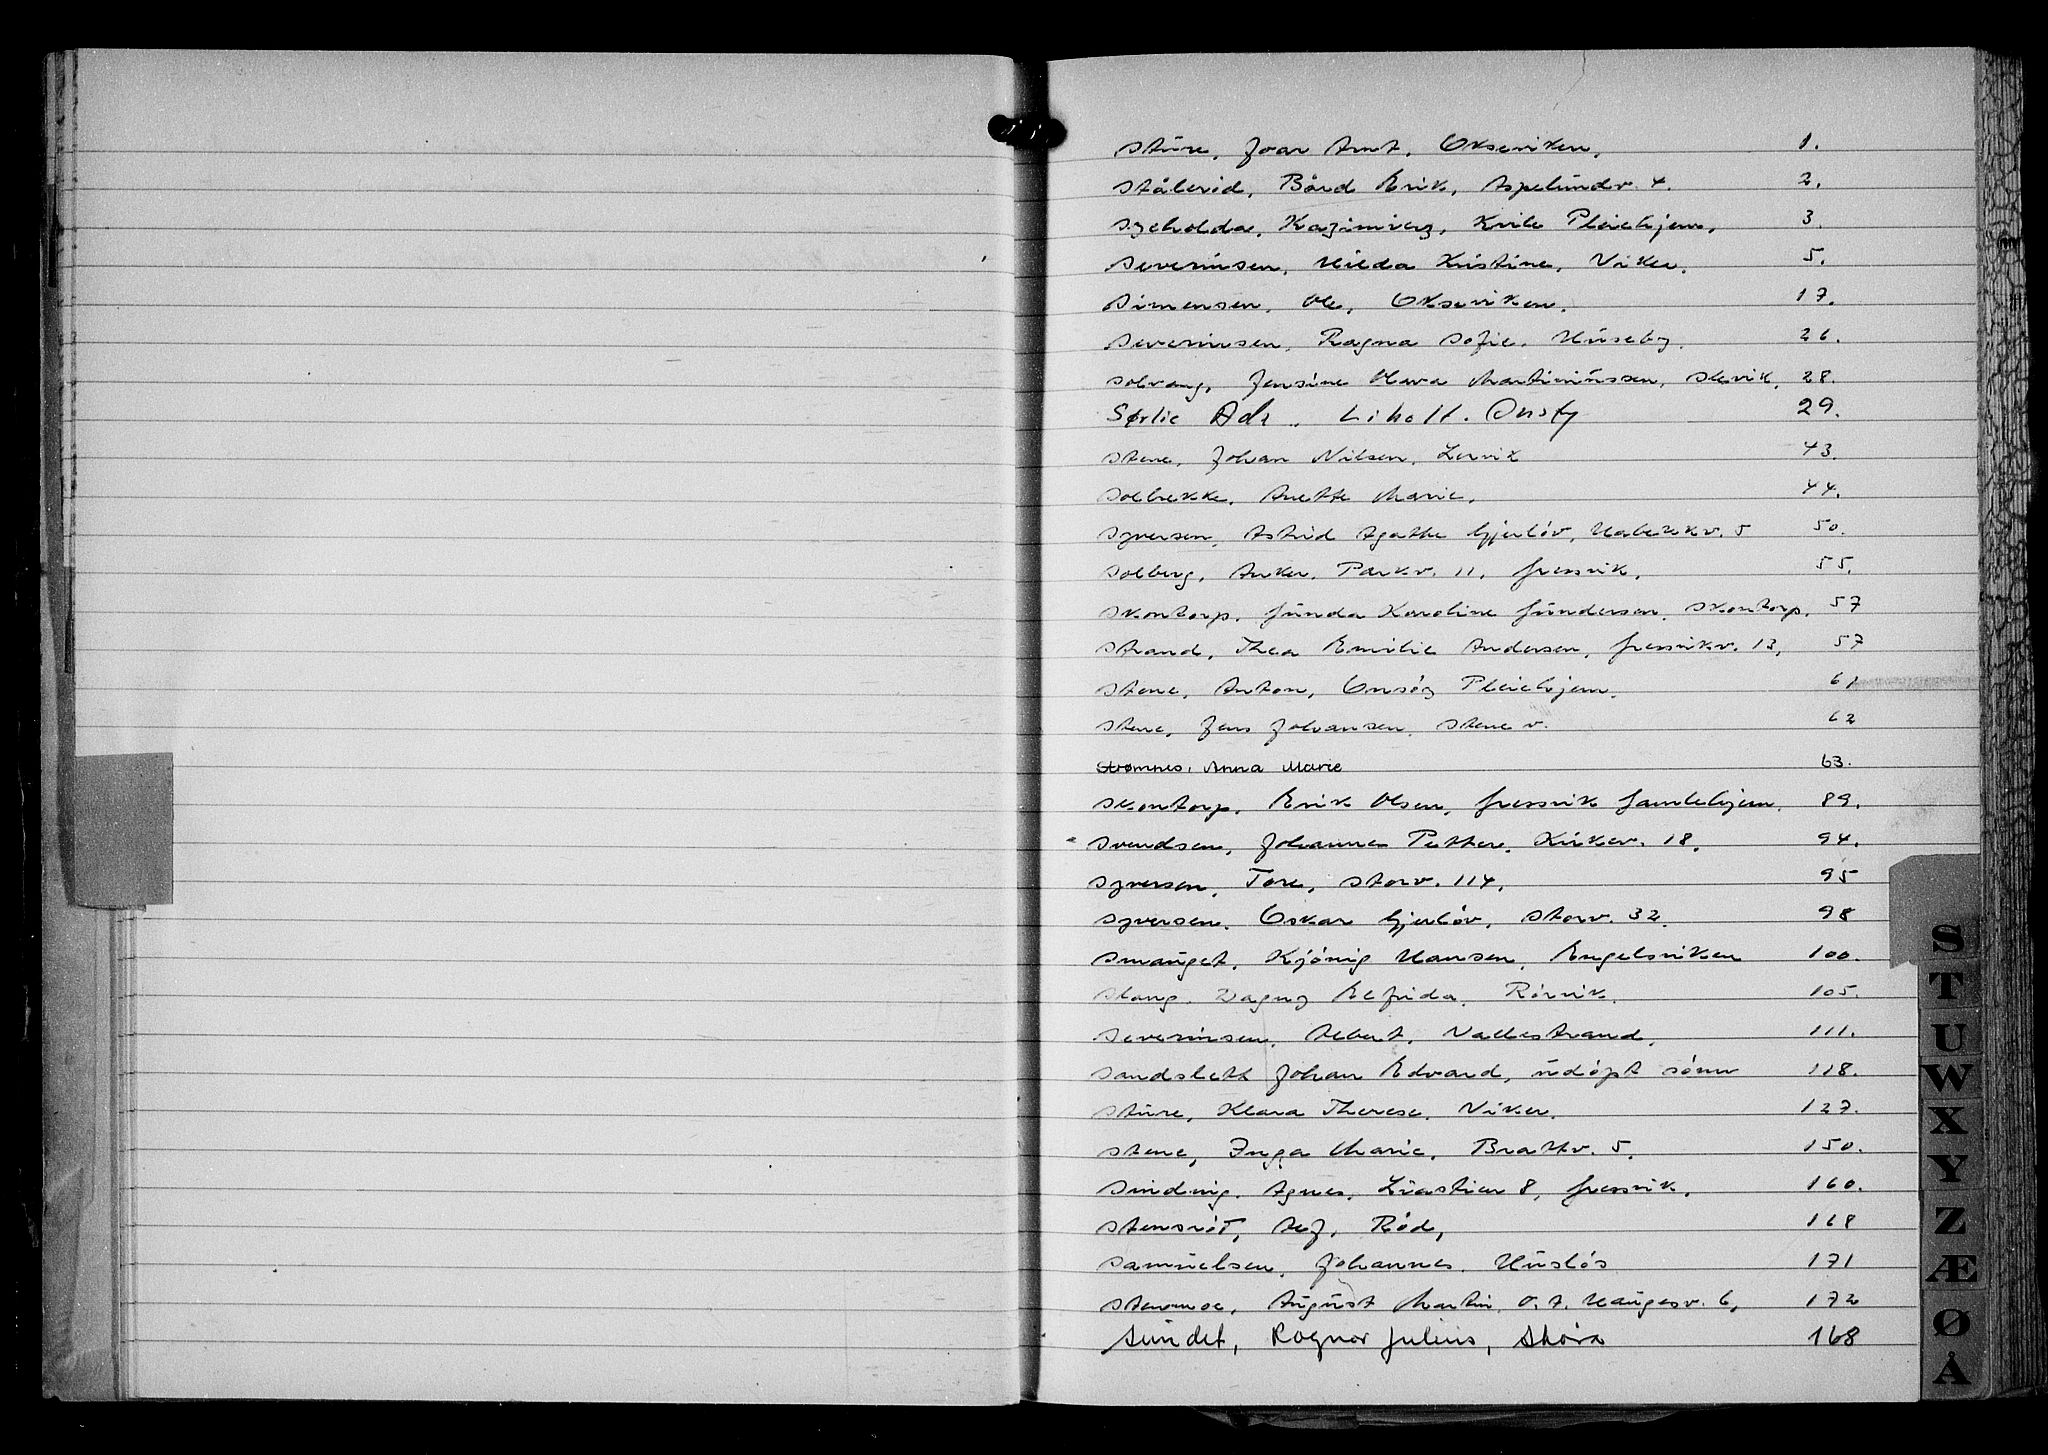 Stüre, Joar Arnt, Okseviken, 1.
Stålerød, Bård Erik, Aspelundv. 4. 2.
Szeholda, Kazimierz, Kvile Pleiehjem, 3.
Severinsen, Hilda Kristine, Viker. 5.
Simensen, Ole, Okseviken, 17.
Severinsen, Ragna Sofie, Huseby. 26.
Solvang, Jensine Olava Martinussen, Slevik, 28.
Sørlie Ad: , Liholt. Onsøy 29.
Stene, Johan Nilsen, Lervik 43.
Solbrekke, Anette Marie, 44.
Syversen, Astrid Agathe Gjerløv, Haberekv. 5 50.
Solberg, Anker, Parkv. 11, Gressvik, 55.
Skontorp, Gunda Karoline Gundersen, Skontorp, 57
Strand, Thea Emilie Andersen, Gressvikv. 13, 57
Stene, Anton, Onsøy Pleiehjem, 61
Stene, Jens Johansen, Stene v. 62
Strømnes, Anna Marie 63.
Skontorp, Erik Olsen, Gressvik Gamlehjem, 89.
Svendsen, Johannes Petter, Kirkev. 18, 94.
Syversen, Tore, Storv. 114, 95
Syversen, Oskar Gjerløv, Storv. 32, 98
Smauget, Kjønig Hansen, Engelsviken 100.
Stang, Dagny Elfrida, Rørvik, 105.
Severinsen, Albert, Vallestrand, 111.
Sandslett Johan Edvard, udøpt sønn 118.
Stüre, Klara Therese, Viker, 127.
Stene, Inga Marie, Brattv. 5, 150.
Sinding, Agnes, Liastien 8, Gressvik, 160.
Stensrød, Alf, Rød, 168
Samuelsen, Johannes, Husløs 171
Stenmoe, August Martin, O. A. Haugesv. 6, 172
Sundet, Ragnar Julius, Skåra 168
S
T
U
W
X
Y
Z
Æ
Ø
Å